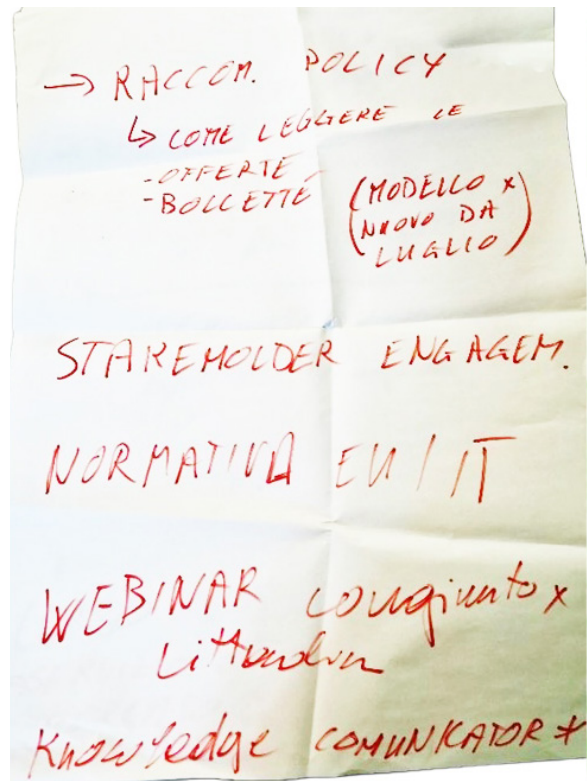 → RACCOM. POLICY
↳ COME LEGGERE LE
- OFFERTE -
- BOLLETTE (MODELLO x
NUOVO DA
LUGLIO)
STAKEHOLDER ENGAGEM.
NORMATIVA EU / IT
WEBINAR congiunto x
Knowledge COMUNICATOR *